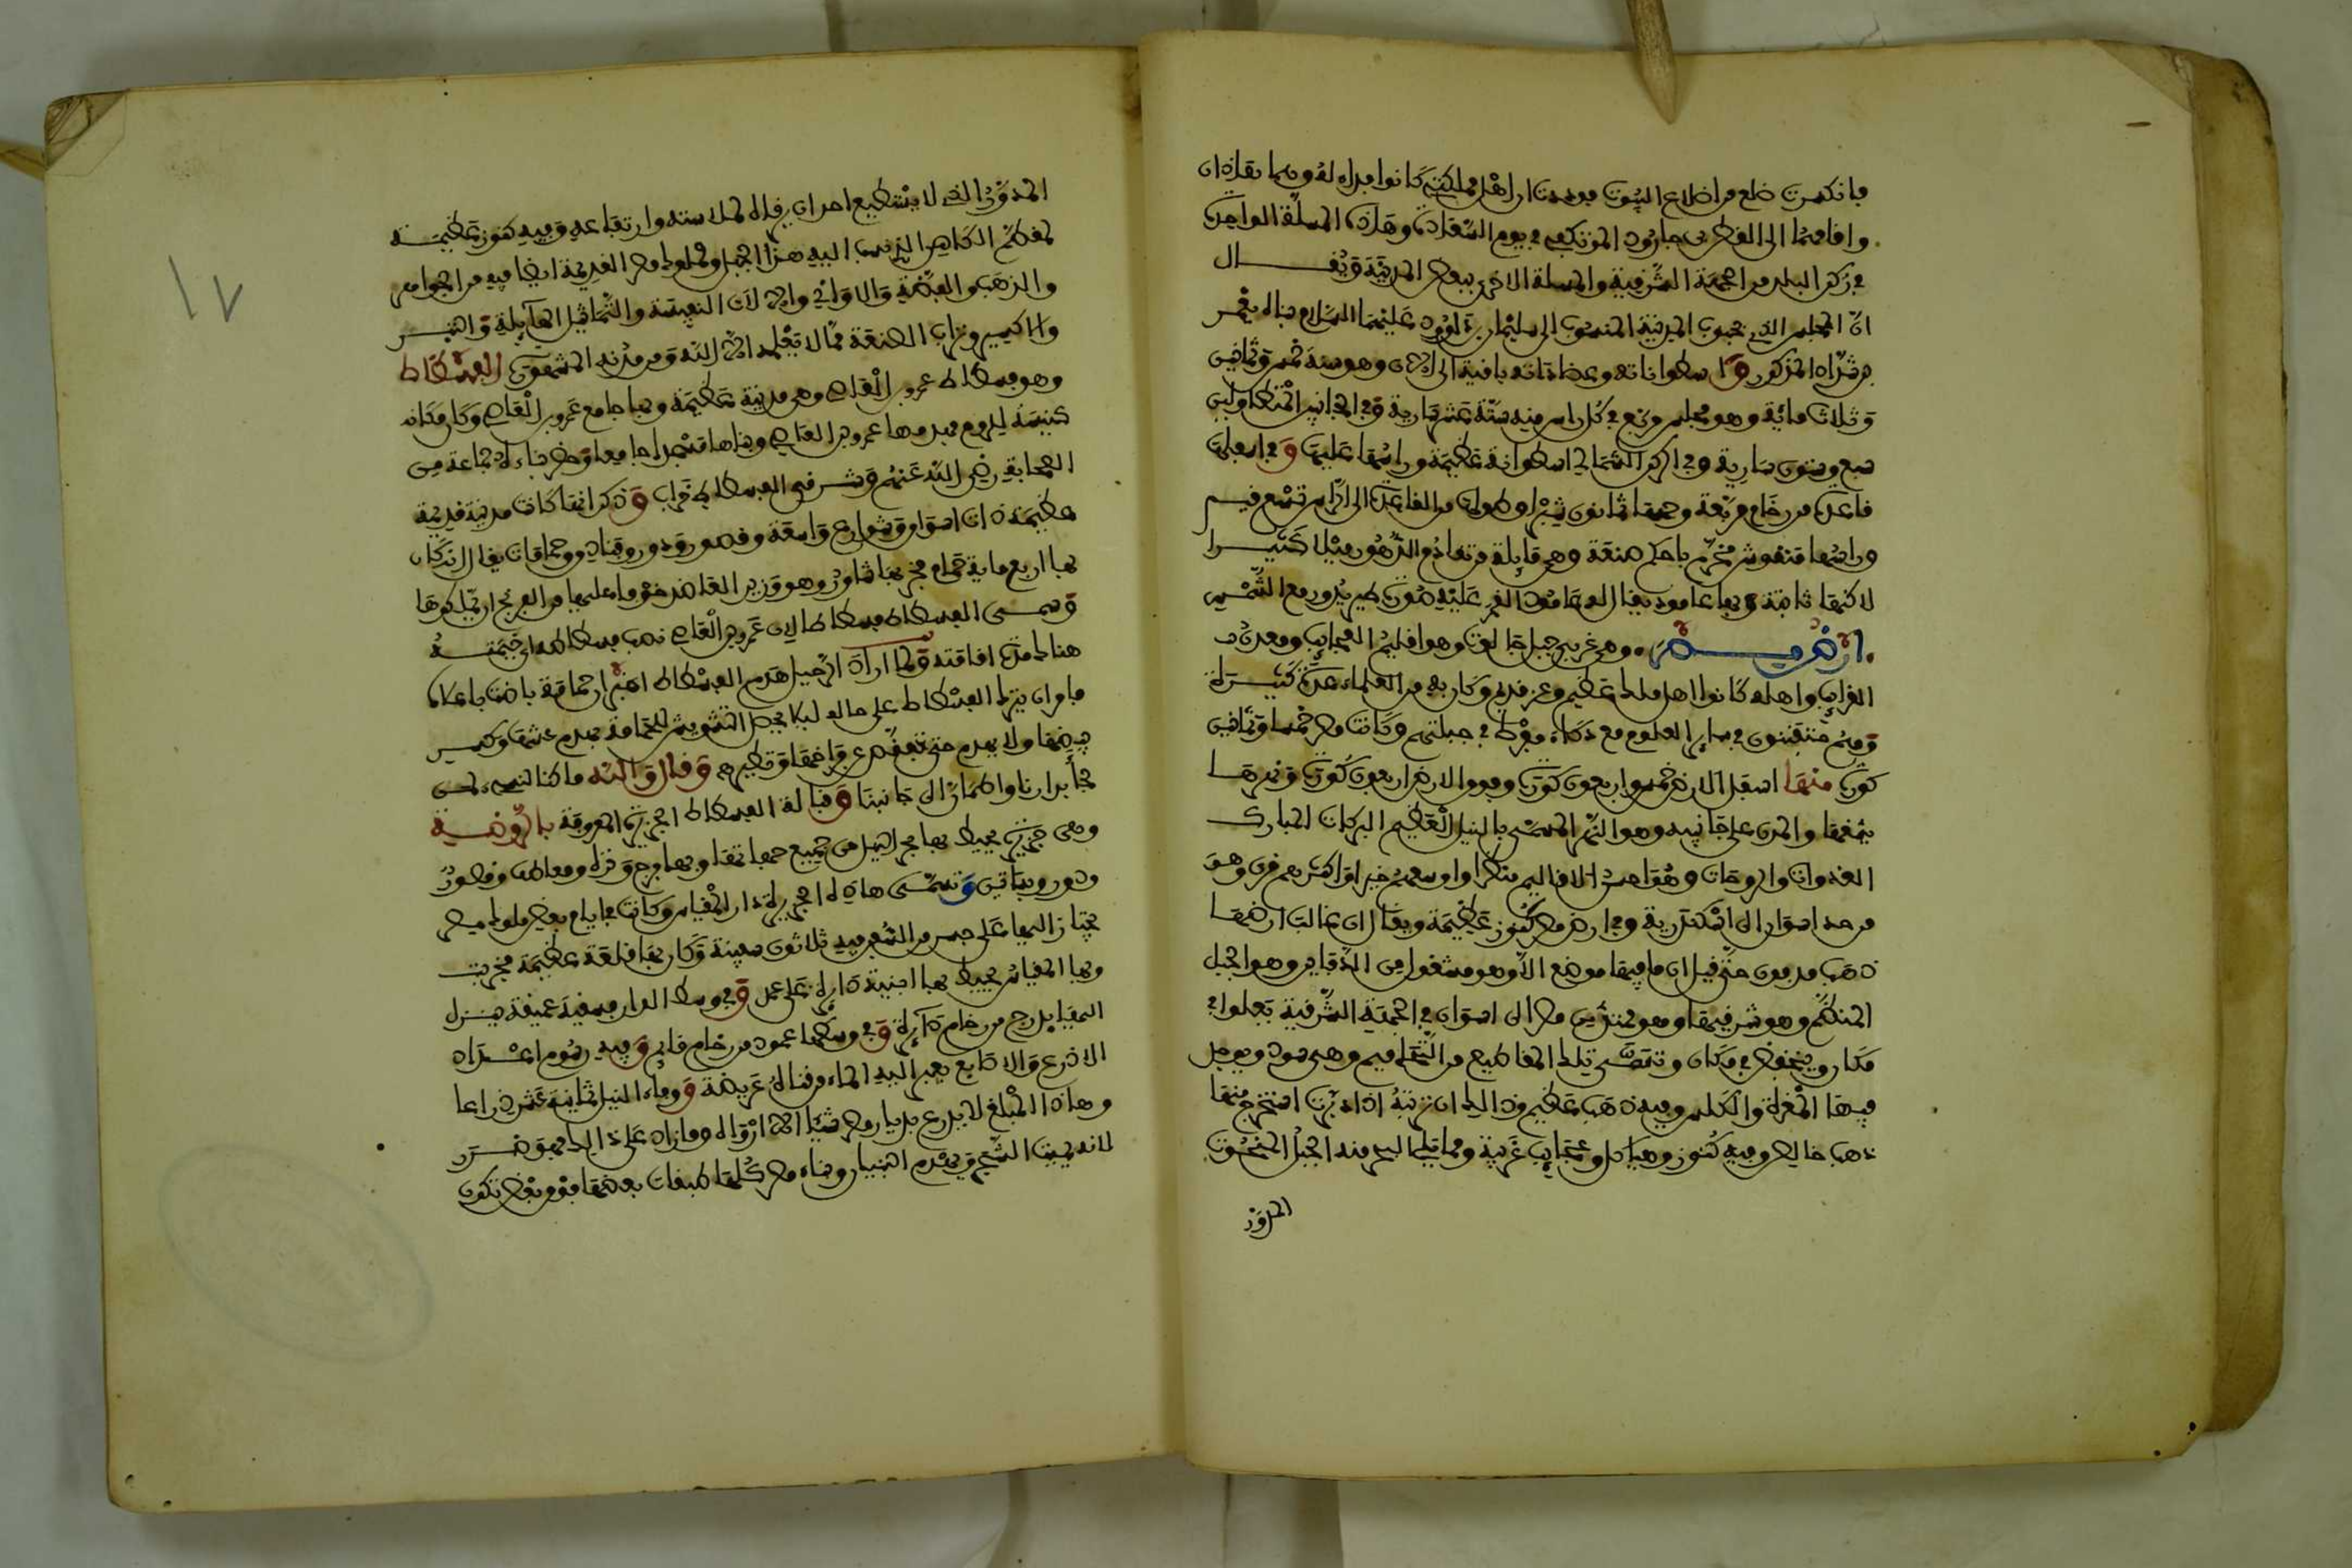 فانكسرت ضلع من اضلاع البيوت فوجدت ان اهل مملكته كانوا فداه لقومها نقلان
واقامتها الى القطرين جارود المؤتفكي في يوم السعادة وهذه المسلة الواحدة
في ركن البلد من الجهة الشرقية والمسلة الاخرى ببعض المدينة ويقال
ان المجلس الذي بجنوب المدينة المنسوب الى سليمان بن داوود عليهما السلام بناه يعمر
بن شداد المذكور واسطواناته وعضاداته باقية الى الان وهو سنة خمس وثمانين
وثلاث مائة وهو مجلس مربع في كل راس منه ستة عشر سارية وفي الجانبين المتطاولين
سبع وستون سارية وفي الركن الشمالي اسطوانة عظيمة وراسها عليها وفي اسفلها
قاعدة من رخام مربعة وجمها ثمانون شبرا وطولها من القاعدة الى الراس تسع قيم
وراسها منقوش مخرم باحكم صنعة وهي مايلة من تقادم الدهور ميلا كثيرا
لاكنها ثابتة وبها عامود يقال له عامود القمر عليه صورة طير يدور مع الشمس
ارض مصر وهي غربي جبل جالوت وهو اقليم العجايب ومعدن
الغرايب واهله كانوا اهل ملك عظيم وعز قديم وكان به من العلماء عدة كثيرة
وهم متفننون في ساير العلوم مع ذكاء مفرط في جبلتهم وكانت مصر خمسا وثمانين
كورة منها اسفل الارض خمس واربعون كورة وفوق الارض اربعون كورة ونهرها
يشقها والمدن على جانبيه وهو النهر المسمى بالنيل العظيم البركات المبارك
الغدوات والروحات وهو احسن الاقاليم منظرا واوسعهم خيرا واكثرهم قرى وهو
من حد اسوان الى اسكندرية وفي ارض مصر كنوز عظيمة ويقال ان غالب ارضها
ذهب مدفون حتى قيل ان ما فيها موضع الا وهو مشغول من الدفاين وهو الجبل
المقطم وهو شرقيها وهو ممتد من مصر الى اسوان في الجهة الشرقية يعلو في
مكان وينخفض في مكان وتسمى تلك المقاطيع من اليحاميم وهي سود ويوجد
فيها المغرة والكلس وفيه ذهب عظيم وذلك ان تربته اذا دبرت استخرج منها
ذهب خالص وفيه كنوز وهياكل وعجايب غريبة ومما يلي البحر منه الجبل المنحوت
المدور
المدور الذي لا يستطيع احد ان يرقاه لملاسته وارتفاعه وفيه كنوز عظيمة
لمقطم الكاهن الذي نسب اليه هذا الجبل ولملوك مصر القديمة ايضا فيه من الجواهر
والذهب والفضة والاواني والالات النفيسة والتماثيل الهايلة والتبر
والاكسير وتراب الصنعة مما لا يعلمه الا الله ومن مدنه المشهورة الفسطاط
وهو فسطاط عمرو بن العاص وهي مدينة عظيمة وبها جامع عمرو بن العاص وكان مكانه
كنيسة للروم فهدمها عمرو بن العاص وبناها مسجدا جامعا وحضر بناءه جماعة من
الصحابة رضي الله عنهم وشرقي الفسطاط خراب وذكر انها كانت مدينة قديمة
عظيمة ذات اسواق وشوارع واسعة وقصور ودور وفنادق وحمامات يقال انه كان
بها اربع مائة حمام فخربها شاور وهو وزير العاضد خوفا عليها من الفرنج ان يملكوها
وسمي الفسطاط فسطاطا لان عمرو بن العاص نصب فسطاطه اي خيمته
هناك مدة اقامته ولما اراد الرحيل هدم الفسطاط اخبر ان حمامة باضت باعلاه
فامر ان يترك الفسطاط على حاله ليلا يحصل التشويش للحمامة بهدم عشها وكسر
بيضها ولا يهدم حتى تفقس عن فراخها وتطيرهم وقال والله ما كنا لنسيء لمن
لجأ بدارنا واطمأن الى جانبنا وقبالة الفسطاط الجزيرة المعروفة بالروضة
وهي جزيرة محيط بها بحر النيل من جميع جهاتها وبها فرج ونزه ومعالم وقصور
ودور وبساتين وتسمى هاذه الجزيرة دار المقياس وكانت في ايام بعض ملوك مصر
يجتاز اليها على جسر من السفن فيه ثلاثون سفينة وكان بها قلعة عظيمة فخربت
وبها المقياس يحيط بها ابنية دايرة على عمد وفي وسط الدار فسقية عميقة ينزل
اليها بدرج من رخام دايرة وفي وسطها عمود من رخام قايم وفيه رسوم اعداد
الاذرع والاصابع يعبر اليه الماء من قناة عريضة ووفاء النيل ثمانية عشر ذراعا
وهاذا المبلغ لا يدع بديار مصر شيئا الا ارواه وما زاد على ذلك فهو ضرر
لانه يميت الشجر ويهدم البنيان وبناء مصر كلها طبقات بعضها فوق بعض تكون
١٧